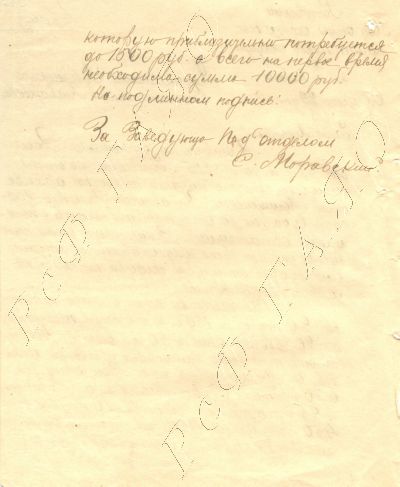 которую приблизительно потребуется
до 1500 руб. а всего на первое время
необходима сумма 10000 руп.
На подлинном подпись:
За Заведующего Подотделом
С. Моравский
РСФ ГАЯО
РСФ ГАЯО